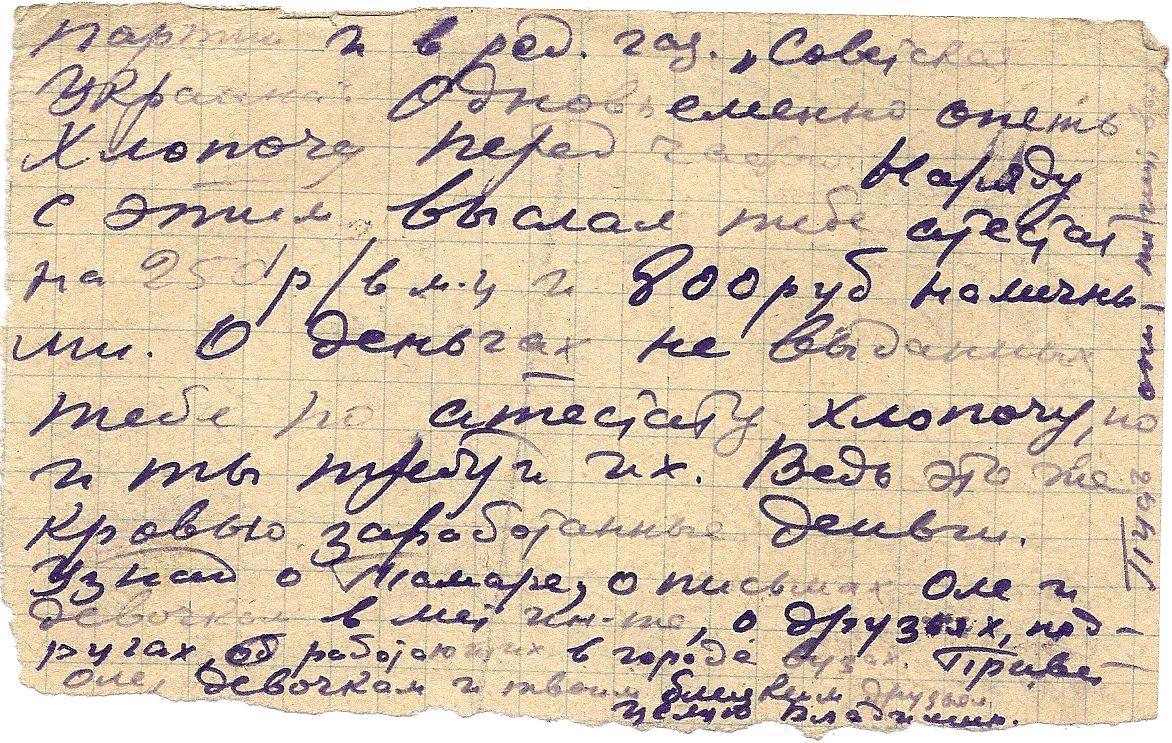 партии и в ред. газ. „Советская
Украина". Одновременно опять
Хлопочу перед Наряду
с этим выслал тебе атестат
на 250 р/в м-ц и 800 руб наличны-
ми. О деньгах не выданных
тебе по атестату хлопочу, но
и ты требуй их. Ведь это же
кровью заработанные деньги.
Узнай о Тамаре, о письмах Оле и
девочкам в мед ин-те, о друзьях, под-
ругах, об работающих в городе вузах. Привет
Оле, девочкам и твоим близким друзьям
Целую Владимир.
Пуст они